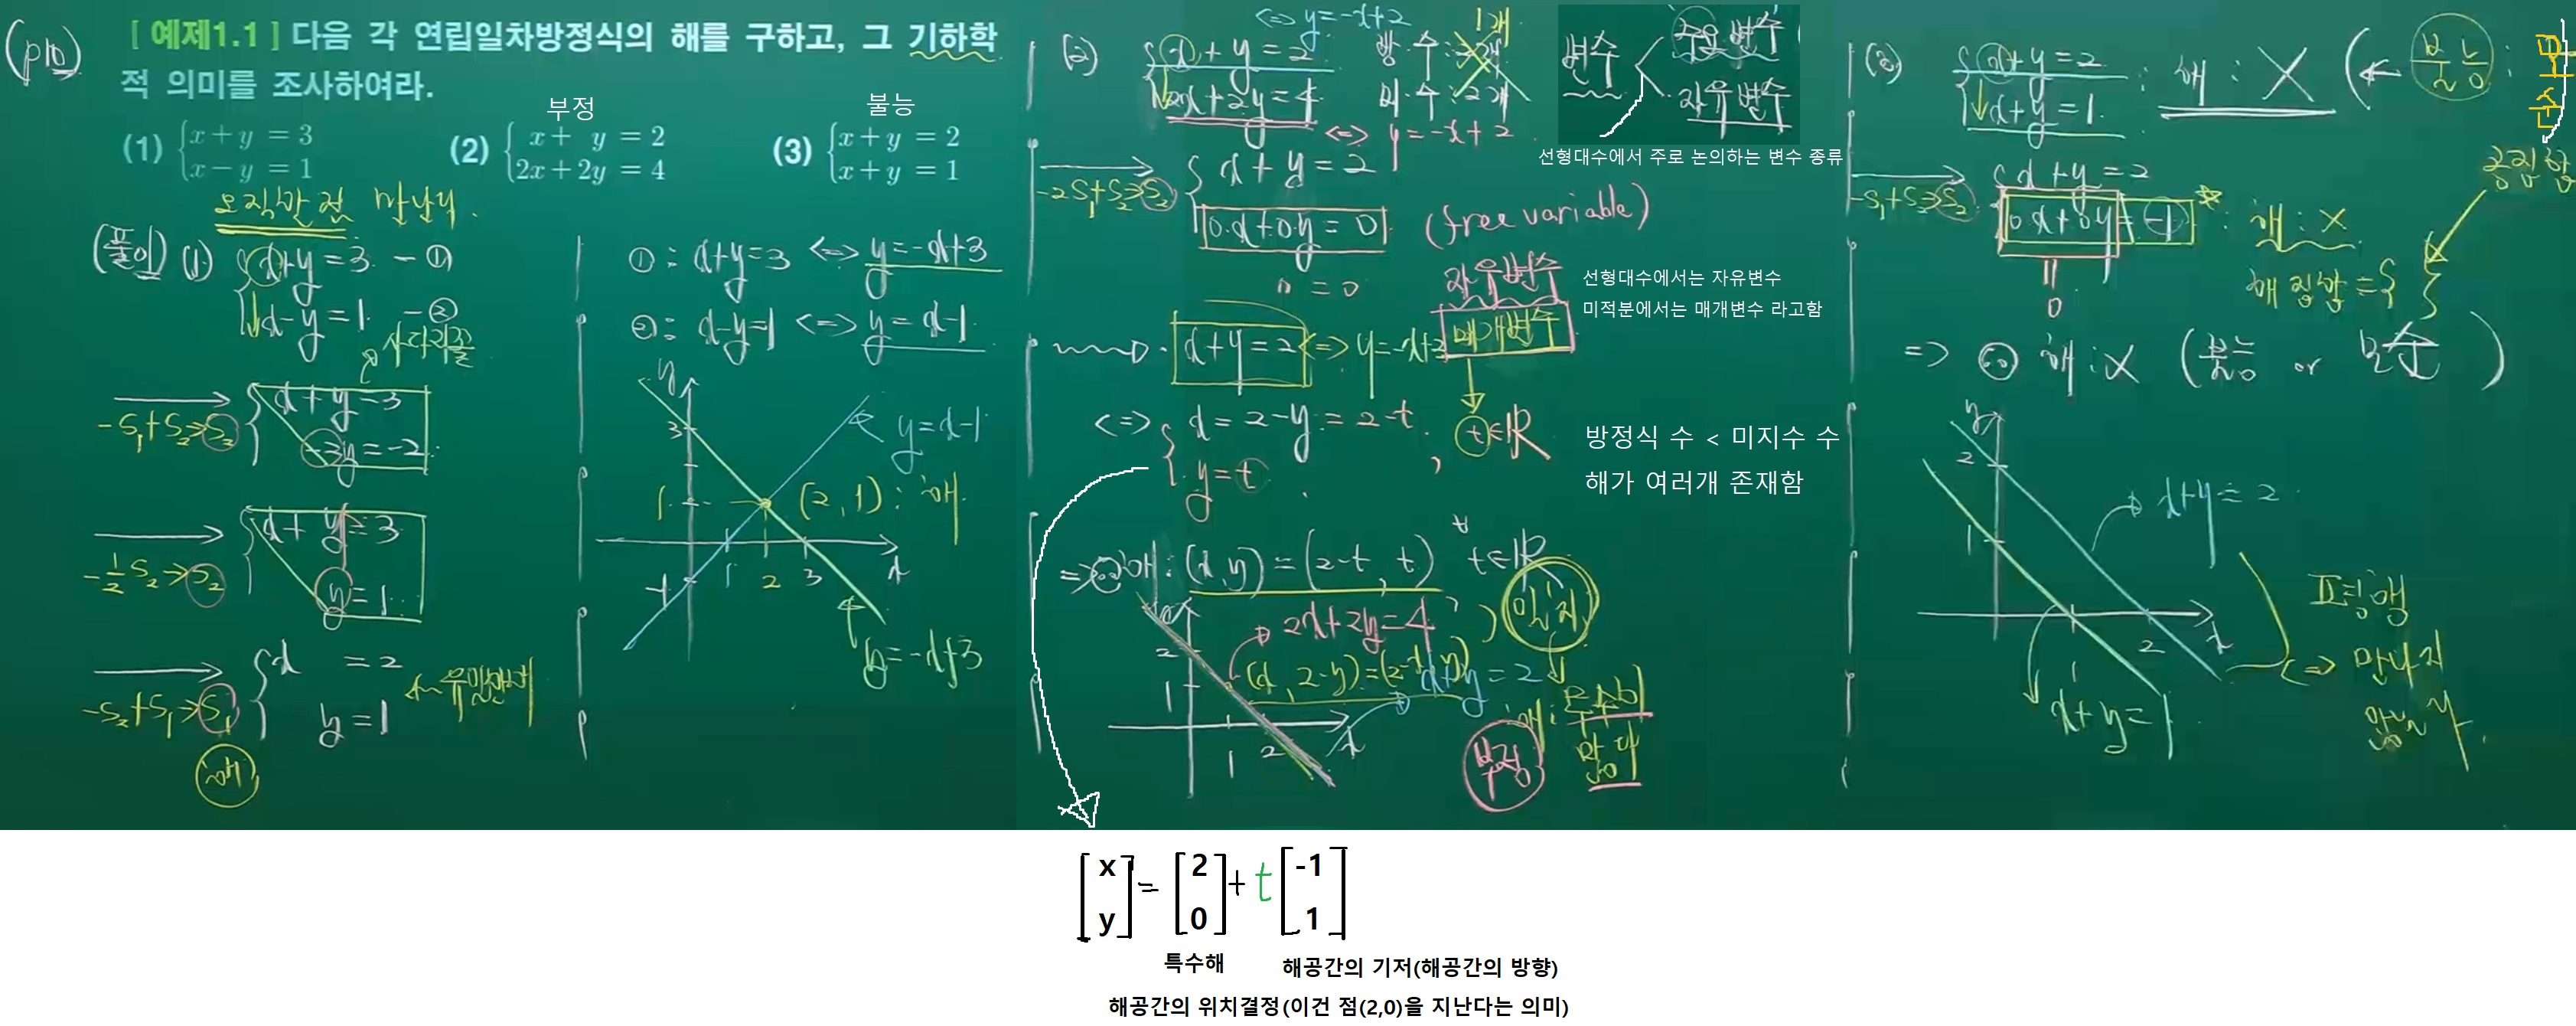 (p10)
[ 예제1.1 ] 다음 각 연립일차방정식의 해를 구하고, 그 기하학
적 의미를 조사하여라.
부정
불능
(1) { x + y = 3
x − y = 1
(2) { x + y = 2
2x + 2y = 4
(3) { x + y = 2
x + y = 1
오직 한 점 만난다.
(풀이) (1) { x+y=3 - ①
x-y=1 - ②
사다리꼴
-S₁+S₂→S₂
x+y=3
y=-2
-1/2 S₂→S₂
x+y=3
y=1
-S₂+S₁→S₁
{ x = 2
y=1
해
①: x+y=3 <=> y=-x+3
②: x-y=1 <=> y=x-1
y
3
1
-1
1 2 3 x
y=x-1
(2,1): 해
y=-x+3
(2)
<=> y=-x+2
{ x+y=2
2x+2y=4
<=> y=-x+2
방. 수:
1개
미. 수: 2개
변수 < 주요 변수
자유 변수
선형대수에서 주로 논의하는 변수 종류
-2S₁+S₂→S₂
{ x+y=2
0·x+0·y=0
0=0
(free variable)
자유변수
매개변수
선형대수에서는 자유변수
미적분에서는 매개변수 라고함
x+y=2 <=> y=-x+2
<=> { x=2-y=2-t, t∈ℝ
y=t
방정식 수 < 미지수 수
해가 여러개 존재함
=> ∴ 해: (x,y)=(2-t, t), ∀t∈ℝ
2x+2y=4
일치
(x, 2-y)=(2-t, t)
x+y=2
2
1
1 2 x
해: 무수히
많다
부정
(3)
{ x+y=2
x+y=1
: 해 : X (← 불능 : 모순
공집합
-S₁+S₂→S₂
{ x+y=2
0·x+0·y=-1 : 해: X
0
해집합={ }
=> ∴ 해: X (불능 or 모순)
y
2
1
1 2 x
x+y=2
x+y=1
평행
<=> 만나지
않는다.
[x y] = [2 0] + t [-1 1]
특수해
해공간의 기저(해공간의 방향)
해공간의 위치결정(이건 점(2,0)을 지난다는 의미)